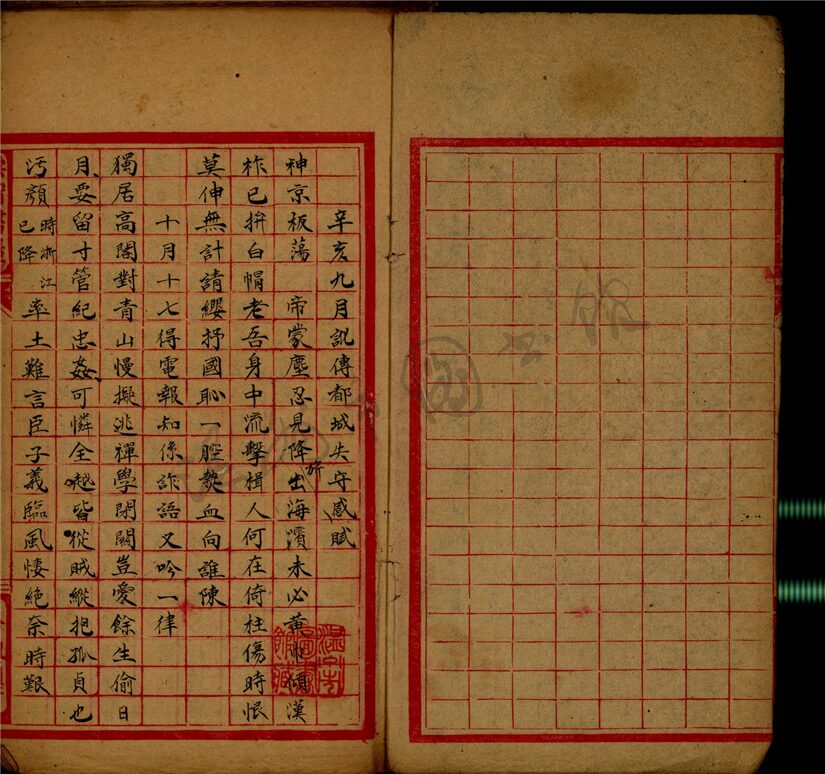 辛亥九月訛傳都城失守感賦
神京板蕩　帝蒙塵忍見降旂出海濱未必黃巾傾漢
祚已拚白帽老吾身中流擊楫人何在倚柱傷時恨
莫伸無計請纓抒國恥一腔熱血向誰陳
十月十七得電報知係詐語又吟一律
獨居高閣對青山慢擬逃禪學閉關豈愛餘生偷日
月要留寸管紀忠姦可憐全越皆從賊縱抱孤貞也
汚顏時浙江已降率土難言臣子義臨風悽絕奈時艱